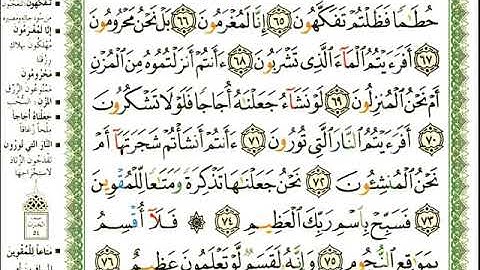 حُطَٰمًا فَظَلْتُمْ تَفَكَّهُونَ ٦٥ إِنَّا لَمُغْرَمُونَ ٦٦ بَلْ نَحْنُ مَحْرُومُونَ
٦٧ أَفَرَءَيْتُمُ ٱلْمَآءَ ٱلَّذِى تَشْرَبُونَ ٦٨ ءَأَنتُمْ أَنزَلْتُمُوهُ مِنَ ٱلْمُزْنِ
أَمْ نَحْنُ ٱلْمُنزِلُونَ ٦٩ لَوْ نَشَآءُ جَعَلْنَٰهُ أُجَاجًا فَلَوْلَا تَشْكُرُونَ
٧٠ أَفَرَءَيْتُمُ ٱلنَّارَ ٱلَّتِى تُورُونَ ٧١ ءَأَنتُمْ أَنشَأْتُمْ شَجَرَتَهَآ أَمْ
نَحْنُ ٱلْمُنشِـُٔونَ ٧٢ نَحْنُ جَعَلْنَٰهَا تَذْكِرَةً وَمَتَٰعًا لِّلْمُقْوِينَ
٧٣ فَسَبِّحْ بِٱسْمِ رَبِّكَ ٱلْعَظِيمِ ٧٤ ۞ فَلَآ أُقْسِمُ
بِمَوَٰقِعِ ٱلنُّجُومِ ٧٥ وَإِنَّهُۥ لَقَسَمٌ لَّوْ تَعْلَمُونَ عَظِيمٌ ٧٦
تَفَكَّهُونَ
إِنَّا لَمُغْرَمُونَ
مُهلكون بهلاك
مَحْرُومُونَ
ممنوعون الرزق
المُزْن: السحب
جَعَلْنَاهُ أُجَاجًا
ملحا زعاقا
النَّارَ الَّتِي تُورُونَ
تقدحون الزناد
لاستخراجها
مَتَاعًا لِلْمُقْوِينَ